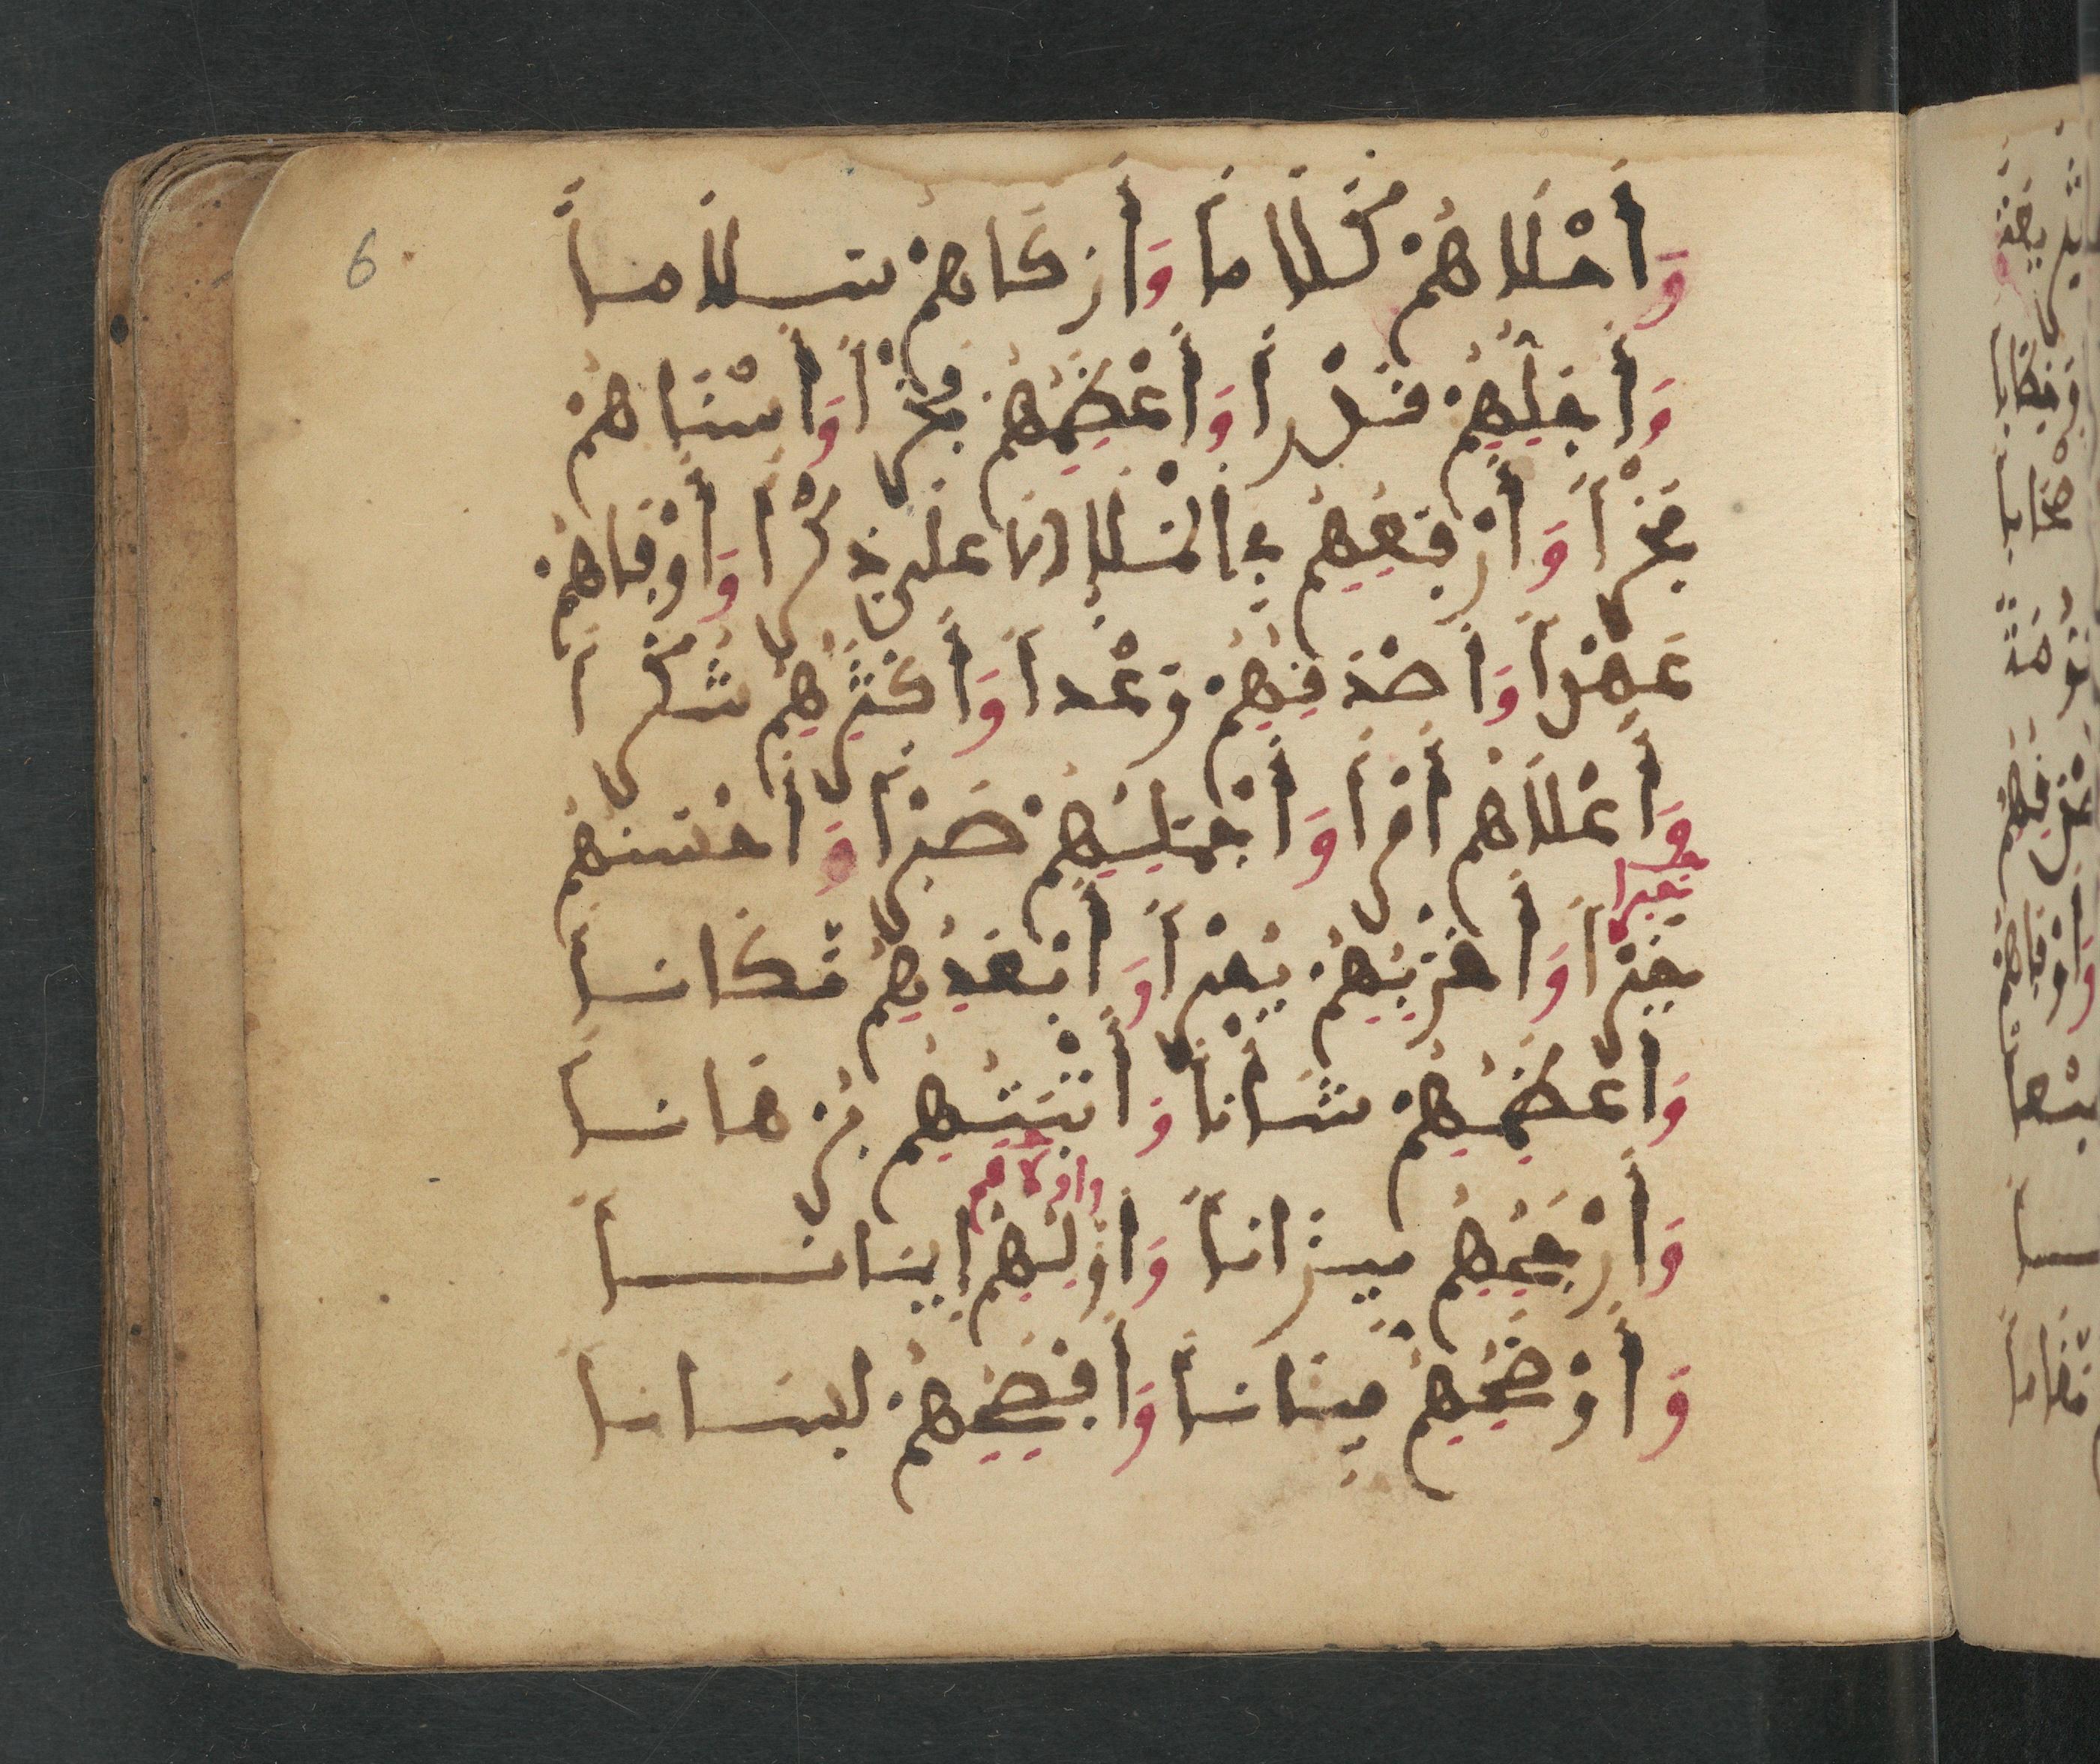 6
وَأَحْلَاهُمْ كَلَاماً وَأَزْكَاهُمْ سَلَاماً
وَأَجَلِّهِمْ قَدْراً وَأَعْظَمِهِمْ فَخْراً وَأَسْنَاهُمْ
فَخْراً وَأَرْفَعِهِمْ فِي الْمَلَإِ الْأَعْلَى ذِكْراً وَأَوْفَاهُمْ
عَهْداً وَأَصْدَقِهِمْ وَعْداً وَأَكْثَرِهِمْ شُكْراً
وَأَعْلَاهُمْ أَمْراً وَأَجْمَلِهِمْ صَبْراً وَأَحْسَنِهِمْ
خبرا
خَيْراً وَأَقْرَبِهِمْ يُسْراً وَأَبْعَدِهِمْ مَكَاناً
وَأَعْظَمِهِمْ شَاناً وَأَثْبَتِهِمْ بُرْهَاناً
واولاهم
وَأَرْجَحِهِمْ مِيزَاناً وَأَوَّلِهِمْ إِيمَاناً
وَأَوْضَحِهِمْ بَيَاناً وَأَفْصَحِهِمْ لِسَاناً